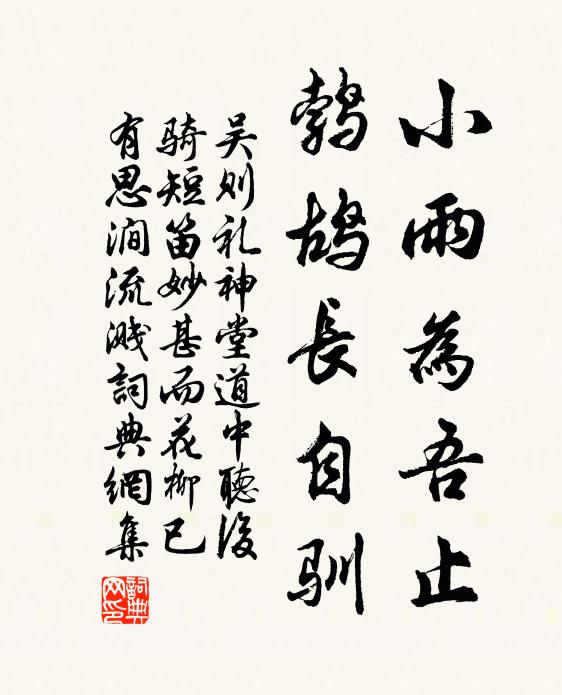 小雨為吾止
鵓鴣長自馴
吴则礼神堂道中聽後
騎短笛妙甚而花柳已
有思澗流濺詞典網集
詞典网印